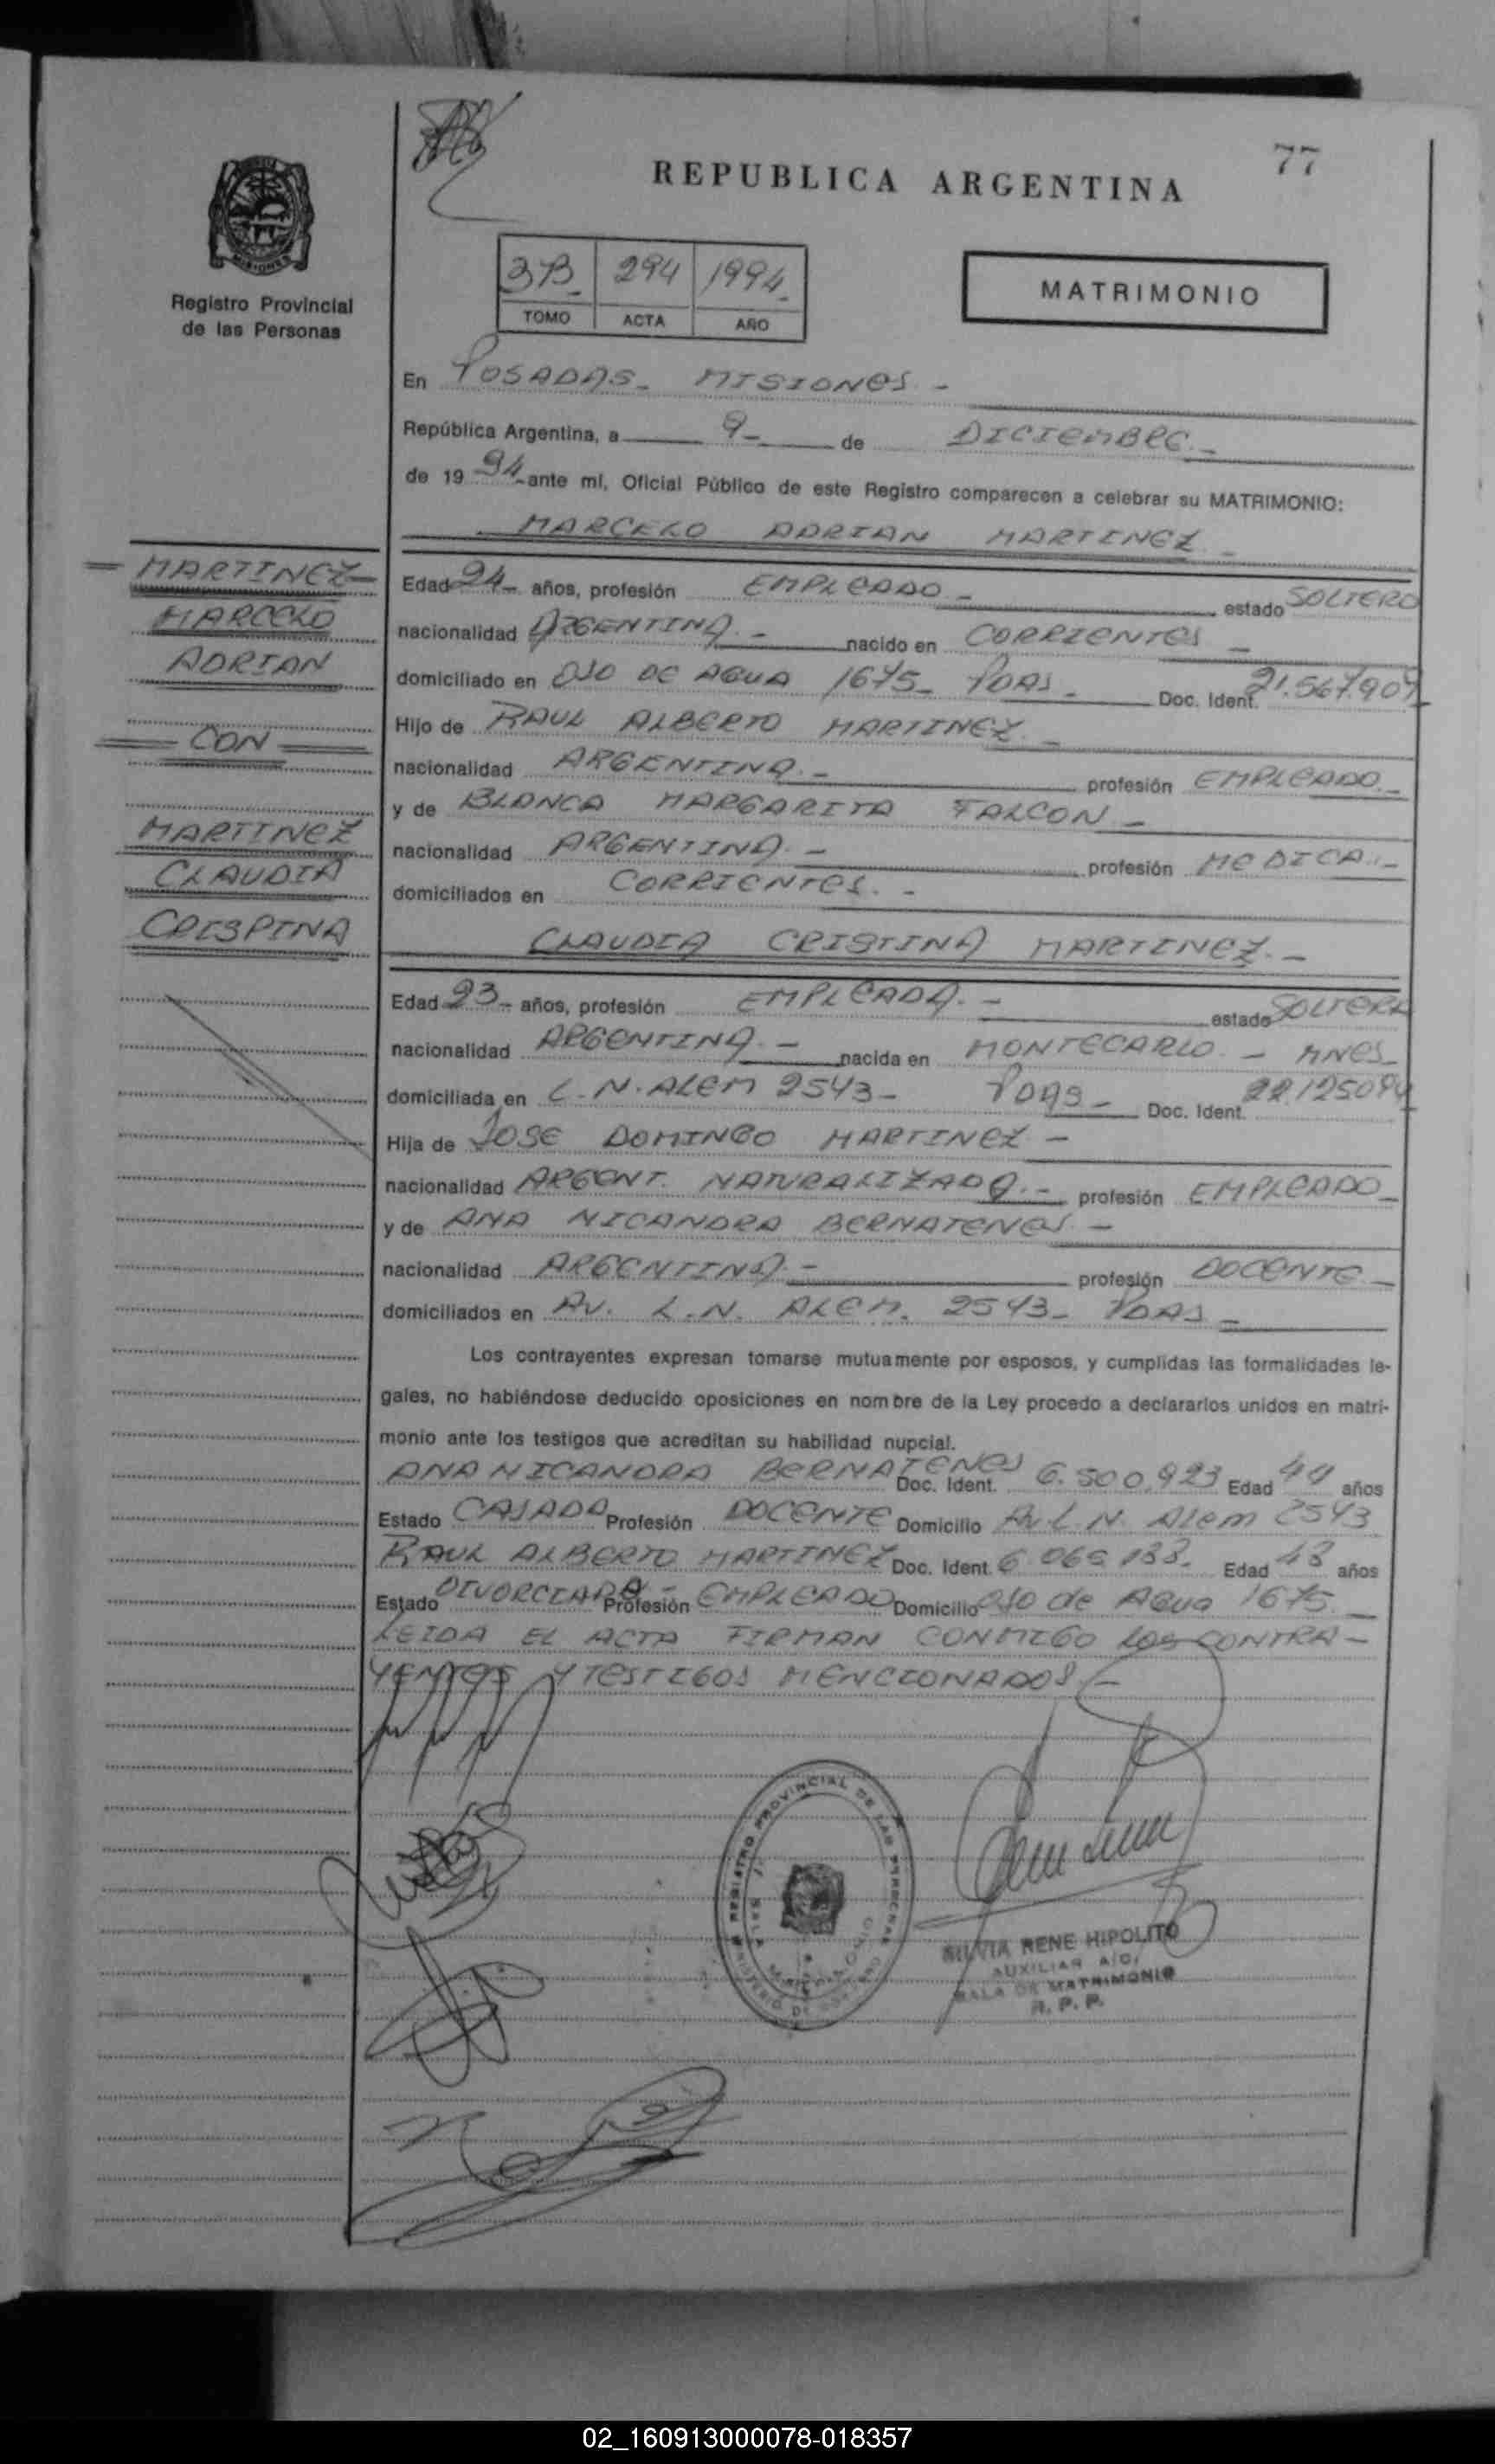 77
REPUBLICA ARGENTINA
MISIONES
Registro Provincial
de las Personas
3B 294 1994
TOMO ACTA AÑO
MATRIMONIO
En POSADAS - MISIONES -
República Argentina, a 9- de DICIEMBRE.-
de 19 94 ante mí, Oficial Público de este Registro comparecen a celebrar su MATRIMONIO:
MARCELO ADRIAN MARTINEZ -
MARTINEZ
MARCELO
ADRIAN
CON
MARTINEZ
CLAUDIA
Edad 24- años, profesión EMPLEADO - estado SOLTERO
nacionalidad ARGENTINA.- nacido en CORRIENTES -
domiciliado en OJO DE AGUA 1675- PDAS - Doc. Ident. 21.567.907
Hijo de RAUL ALBERTO MARTINEZ. -
nacionalidad ARGENTINA.- profesión EMPLEADO.-
y de BLANCA MARGARITA FALCON -
nacionalidad ARGENTINA.- profesión MEDICA.-
domiciliados en CORRIENTES. -
CLAUDIA CRISTINA MARTINEZ.-
Edad 23- años, profesión EMPLEADA.- estado SOLTERA
nacionalidad ARGENTINA.- nacida en MONTECARLO. - MNES
domiciliada en L.N.ALEM 2543- PDAS - Doc. Ident.
Hija de JOSE DOMINGO MARTINEZ -
nacionalidad ARGENT. NATURALIZADO.- profesión EMPLEADO-
y de ANA NICANDRA BERNATENES -
nacionalidad ARGENTINA.- profesión DOCENTE-
domiciliados en AV. L.N. ALEM. 2543- PDAS -
Los contrayentes expresan tomarse mutuamente por esposos, y cumplidas las formalidades le-
gales, no habiéndose deducido oposiciones en nombre de la Ley procedo a declararlos unidos en matri-
monio ante los testigos que acreditan su habilidad nupcial.
ANA NICANDRA BERNATENES Doc. Ident. 6.500.923 Edad años
Estado CASADA Profesión DOCENTE Domicilio Av. L.N. Alem 2543
RAUL ALBERTO MARTINEZ Doc. Ident. Edad 48 años
Estado DIVORCIADO - Profesión EMPLEADO Domicilio OJO de Agua 1675-
LEIDA EL ACTA FIRMAN CONMIGO LOS CONTRA-
YENTES Y TESTIGOS MENCIONADOS.-
REGISTRO PROVINCIAL DE LAS PERSONAS
SILVIA RENE HIPOLITO
AUXILIAR A/C.
SALA DE MATRIMONIO
R. P. P.
02_160913000078-018357